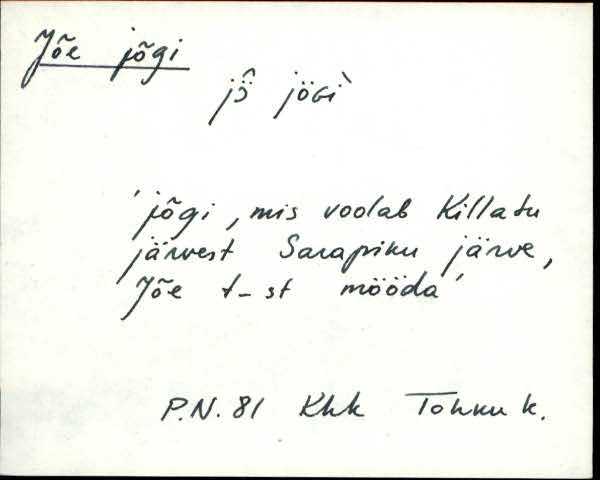 Jõe jõgi
jɔ̈̑ jöGi`
'jõgi, mis voolab Killatu
järvest Sarapiku järve,
Jõe t-st mööda'
P.N. 81 Khk Tohku k.